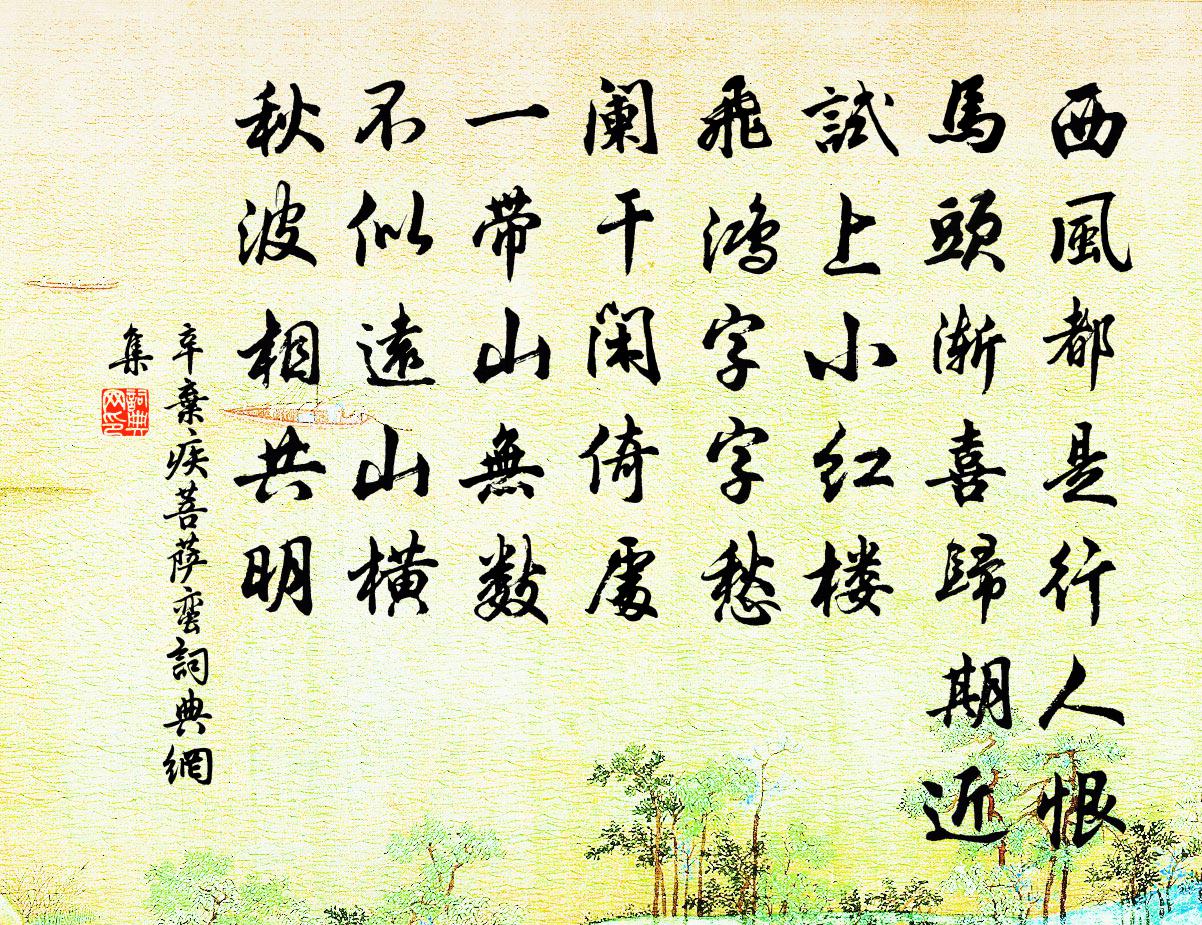 西風都是行人恨
馬頭漸喜歸期近
試上小红楼
飛鴻字字愁
阑干闲倚處
一帶山無数
不似遠山橫
秋波相共明
辛棄疾菩萨蛮詞典網
集
詞典網印